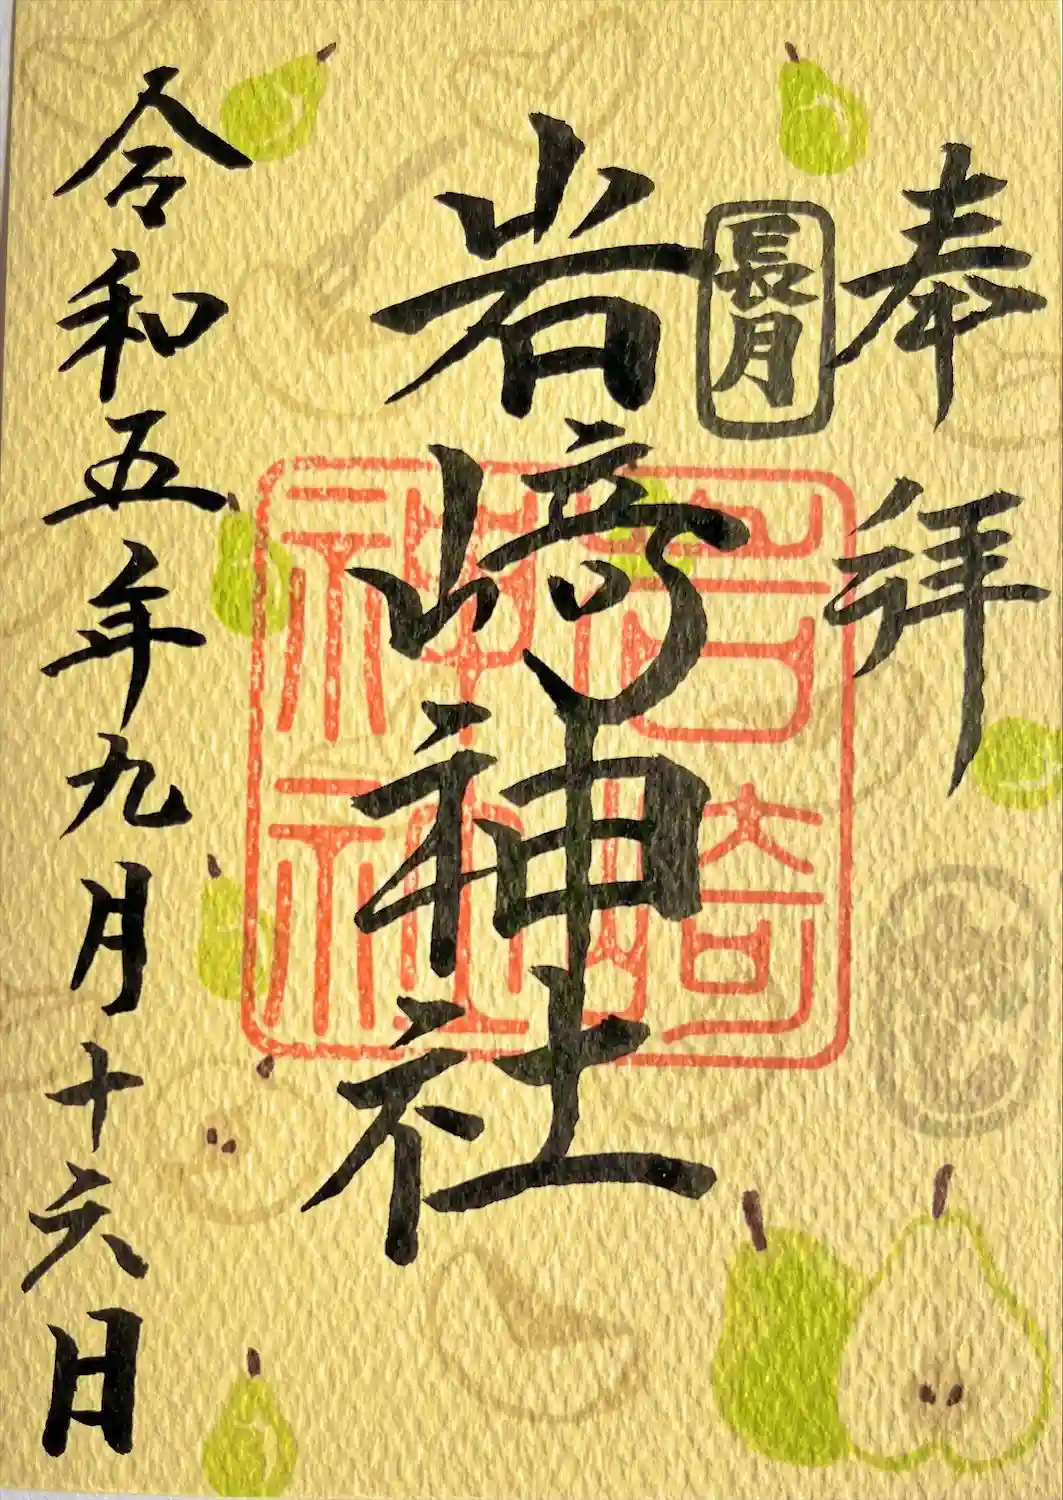 奉拝
長月
岩﨑神社
岩﨑
神社
令和五年九月十六日